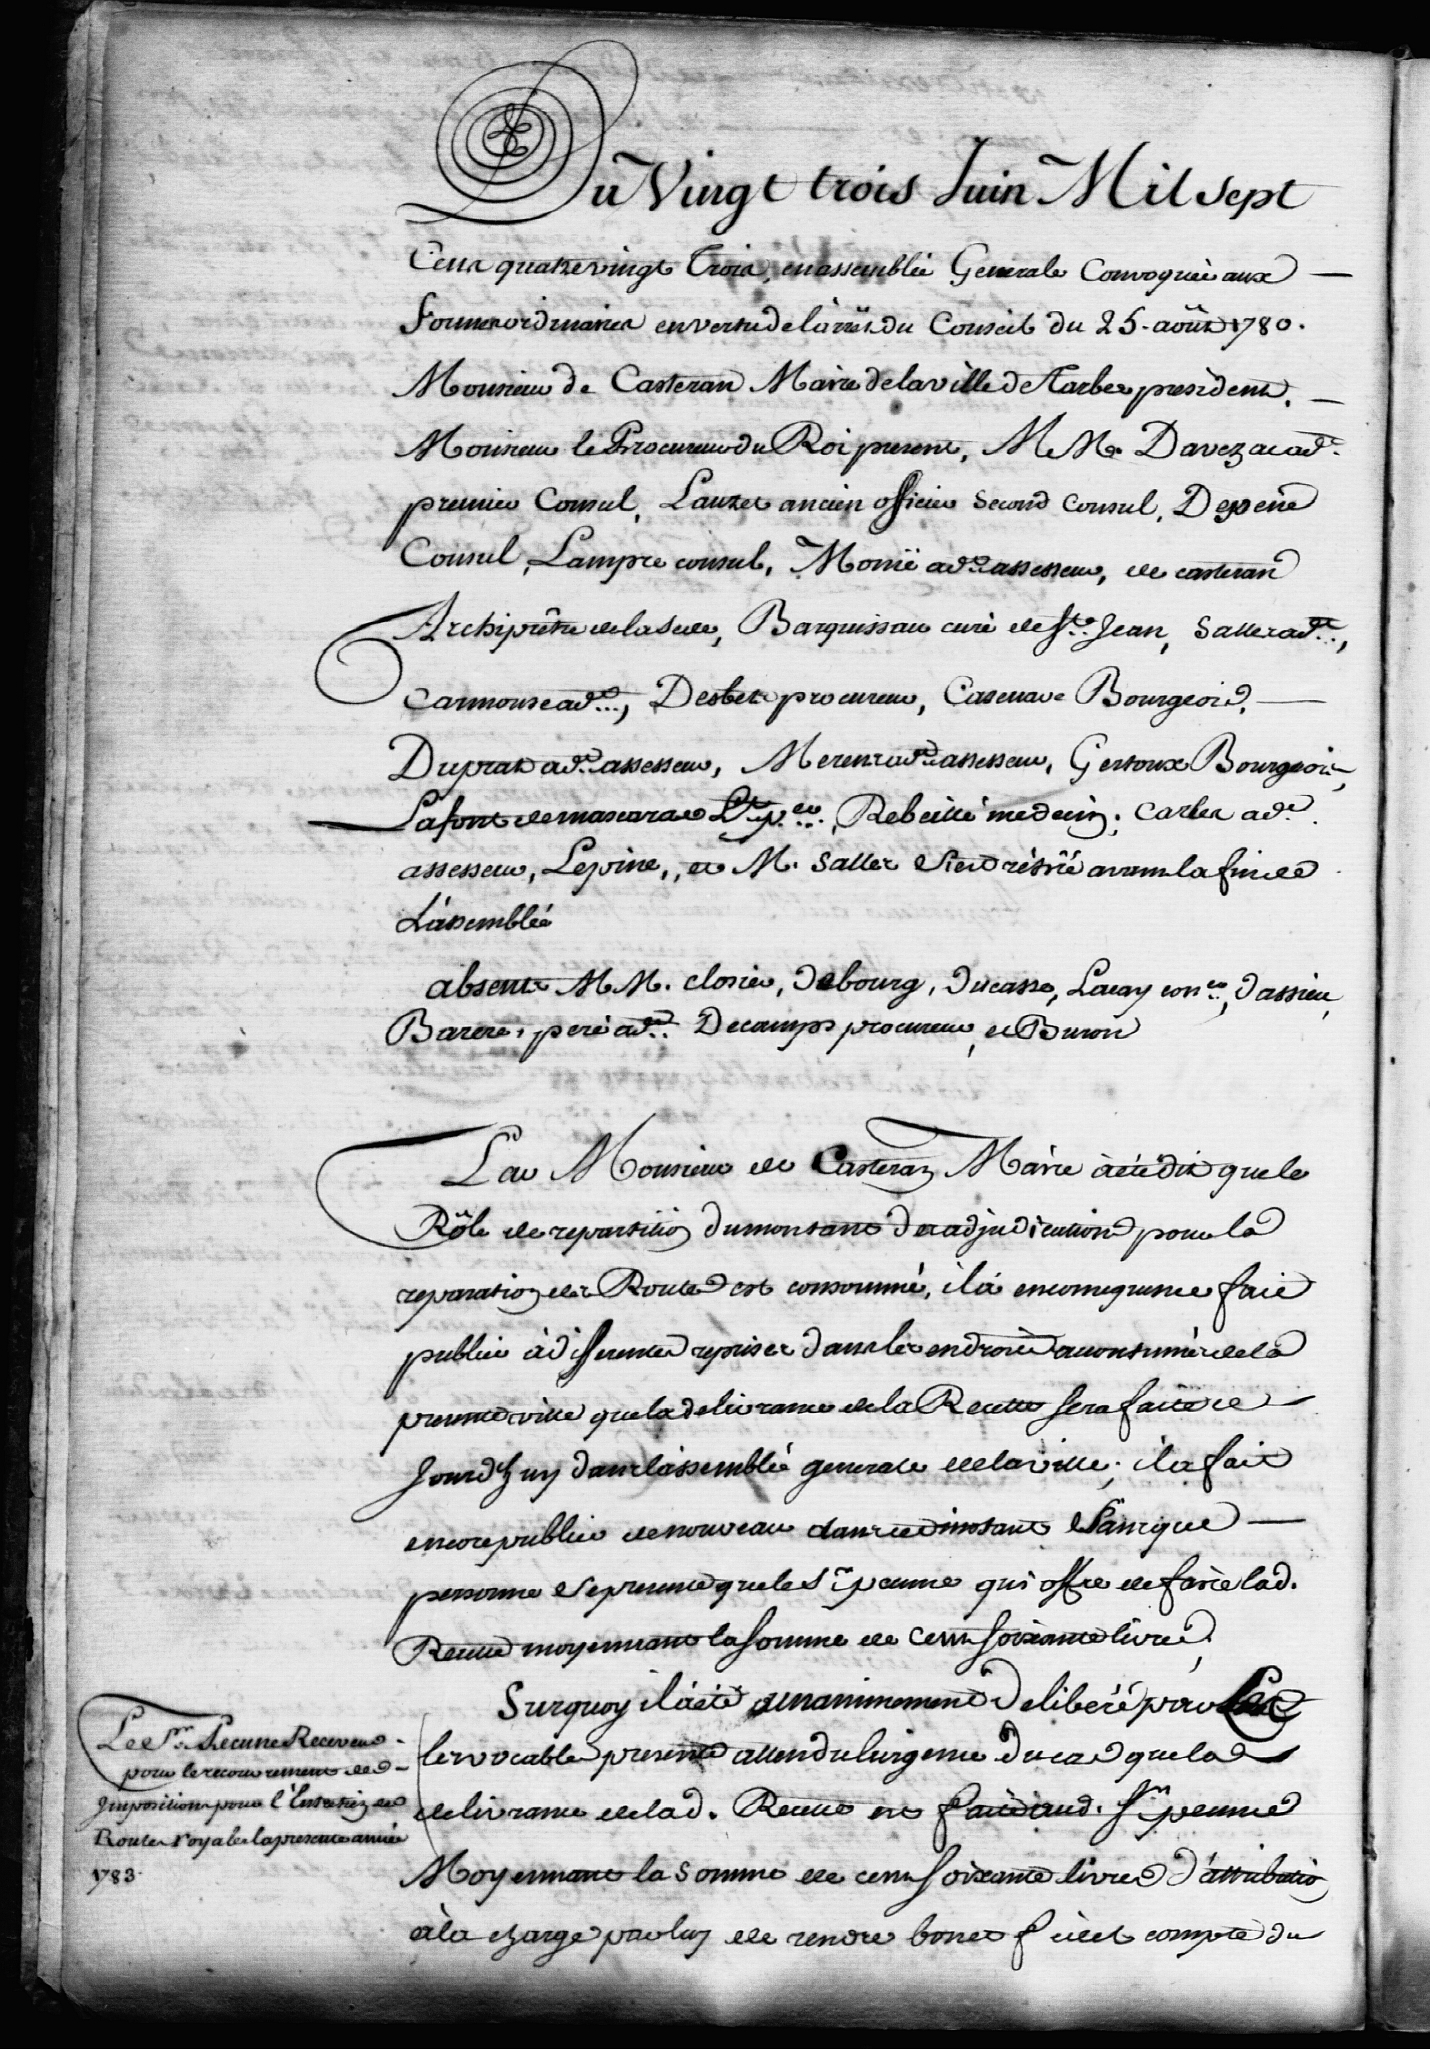 Du Vingt trois Juin Mil sept
Cens quatre vingt Trois, en assemblée Generale Convoquée aux
formes ordinaires en vertu de l'arrêt du Conseil du 25. août 1780.
Monsieur de Casteran Maire de la ville de Tarbes president.
Monsieur le Procureur du Roi present, M M. Davezac adt.
premier Consul, Lauzet ancien officier second Consul, Depeïré
Consul, Lampre consul, Monïe adt. assesseur, de casteran
Archiprêtre de la sede, Barquissau curé de St. Jean, Salles adt.,
Carmouse adt., Desbets procureur, Casenave Bourgeois,
Duprat adt. assesseur, Merens adt. assesseur, Gertoux Bourgeois,
Lafont de mascaras Lt. per., Rebeillé medecin, Carles adt.
assesseur, Lepine, et M. Salles s'est rétiré avant la fin de
L'assemblée
absents M M. closier, debourg, ducasse, Lacay coner., dassieu,
Barere, pere adt. Decamps procureur, et Buron
Par Monsieur de Casteran Maire a été dit que le
Rôle de repartition du montant des adjudications pour la
reparation des Routes est consommé, il a en consequence fait
publier à differentes reprises dans les endroits accoutumés de la
presente ville que la delivrance de la Recette sera faite ce
Jourd'huy dans l'assemblée generale de la ville; il a fait
encore publier de nouveau dans cet instant et san que
personne se presente que le Sr. pecune qui offre de faire lad.
Recette moyennant la somme de cent soixante livres.
Surquoy il a été unanimement deliberé par Les
les vocables presents attendu l'urgence du cas que la
delivrance de lad. Recette est faite aud. Sr. pecune
Moyennant la somme de cent soixante livres d'attribution
à la charge par luy de rendre bon et fidel compte du
Le Sr. Pecune Receveur
pour le recouvrement des
Impositions pour l'Entretien des
Routes royales la presente année
1783.